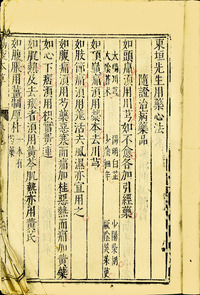 東垣先生用藥心法
隨證治病藥品
如頭痛須用川芎如不愈各加引經藥
太陽川芎 陽明白芷 少陽柴胡
太陰蒼朮 少陰細辛 厥陰吳茱萸
如頂巔痛須用藁本去川芎
如肢節痛須用羌活去風濕亦宜用之
如腹痛須用芍藥惡寒而痛加桂惡熱而痛加黃蘗
如心下痞須用枳實黃連
如肌熱及去痰者須用黃芩肌熱亦用黃芪
如腹脹用薑制厚朴